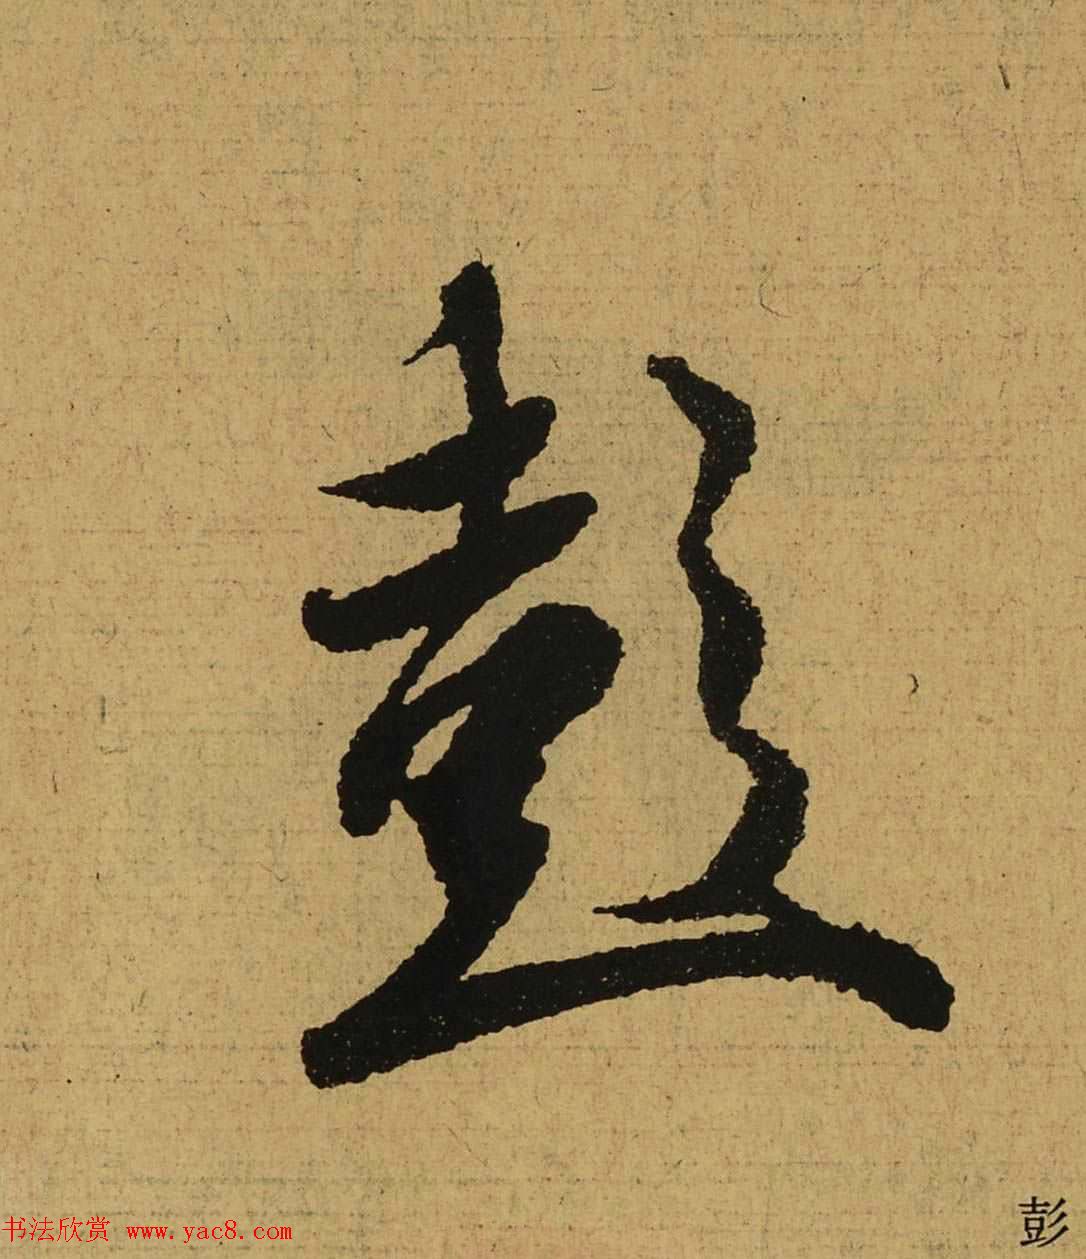 彭
书法欣赏 www.yac8.com
彭